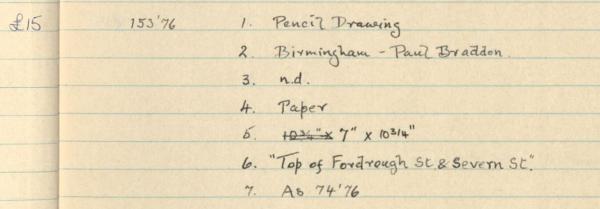 £15 153'76 1. Pencil Drawing
2. Birmingham - Paul Braddon.
3. n.d.
4. Paper
5. 10¾" x 7" x 10 3/4"
6. "Top of Fordrough St. & Severn St."
7. As 74'76